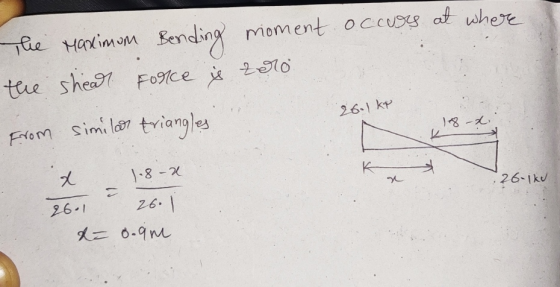 The Maximum Bending moment occurs at where
the shear Force is zero
From similar triangles
26.1 kN
1.8-x
x
26.1kN
x/26.1 = 1.8-x/26.1
x = 0.9m